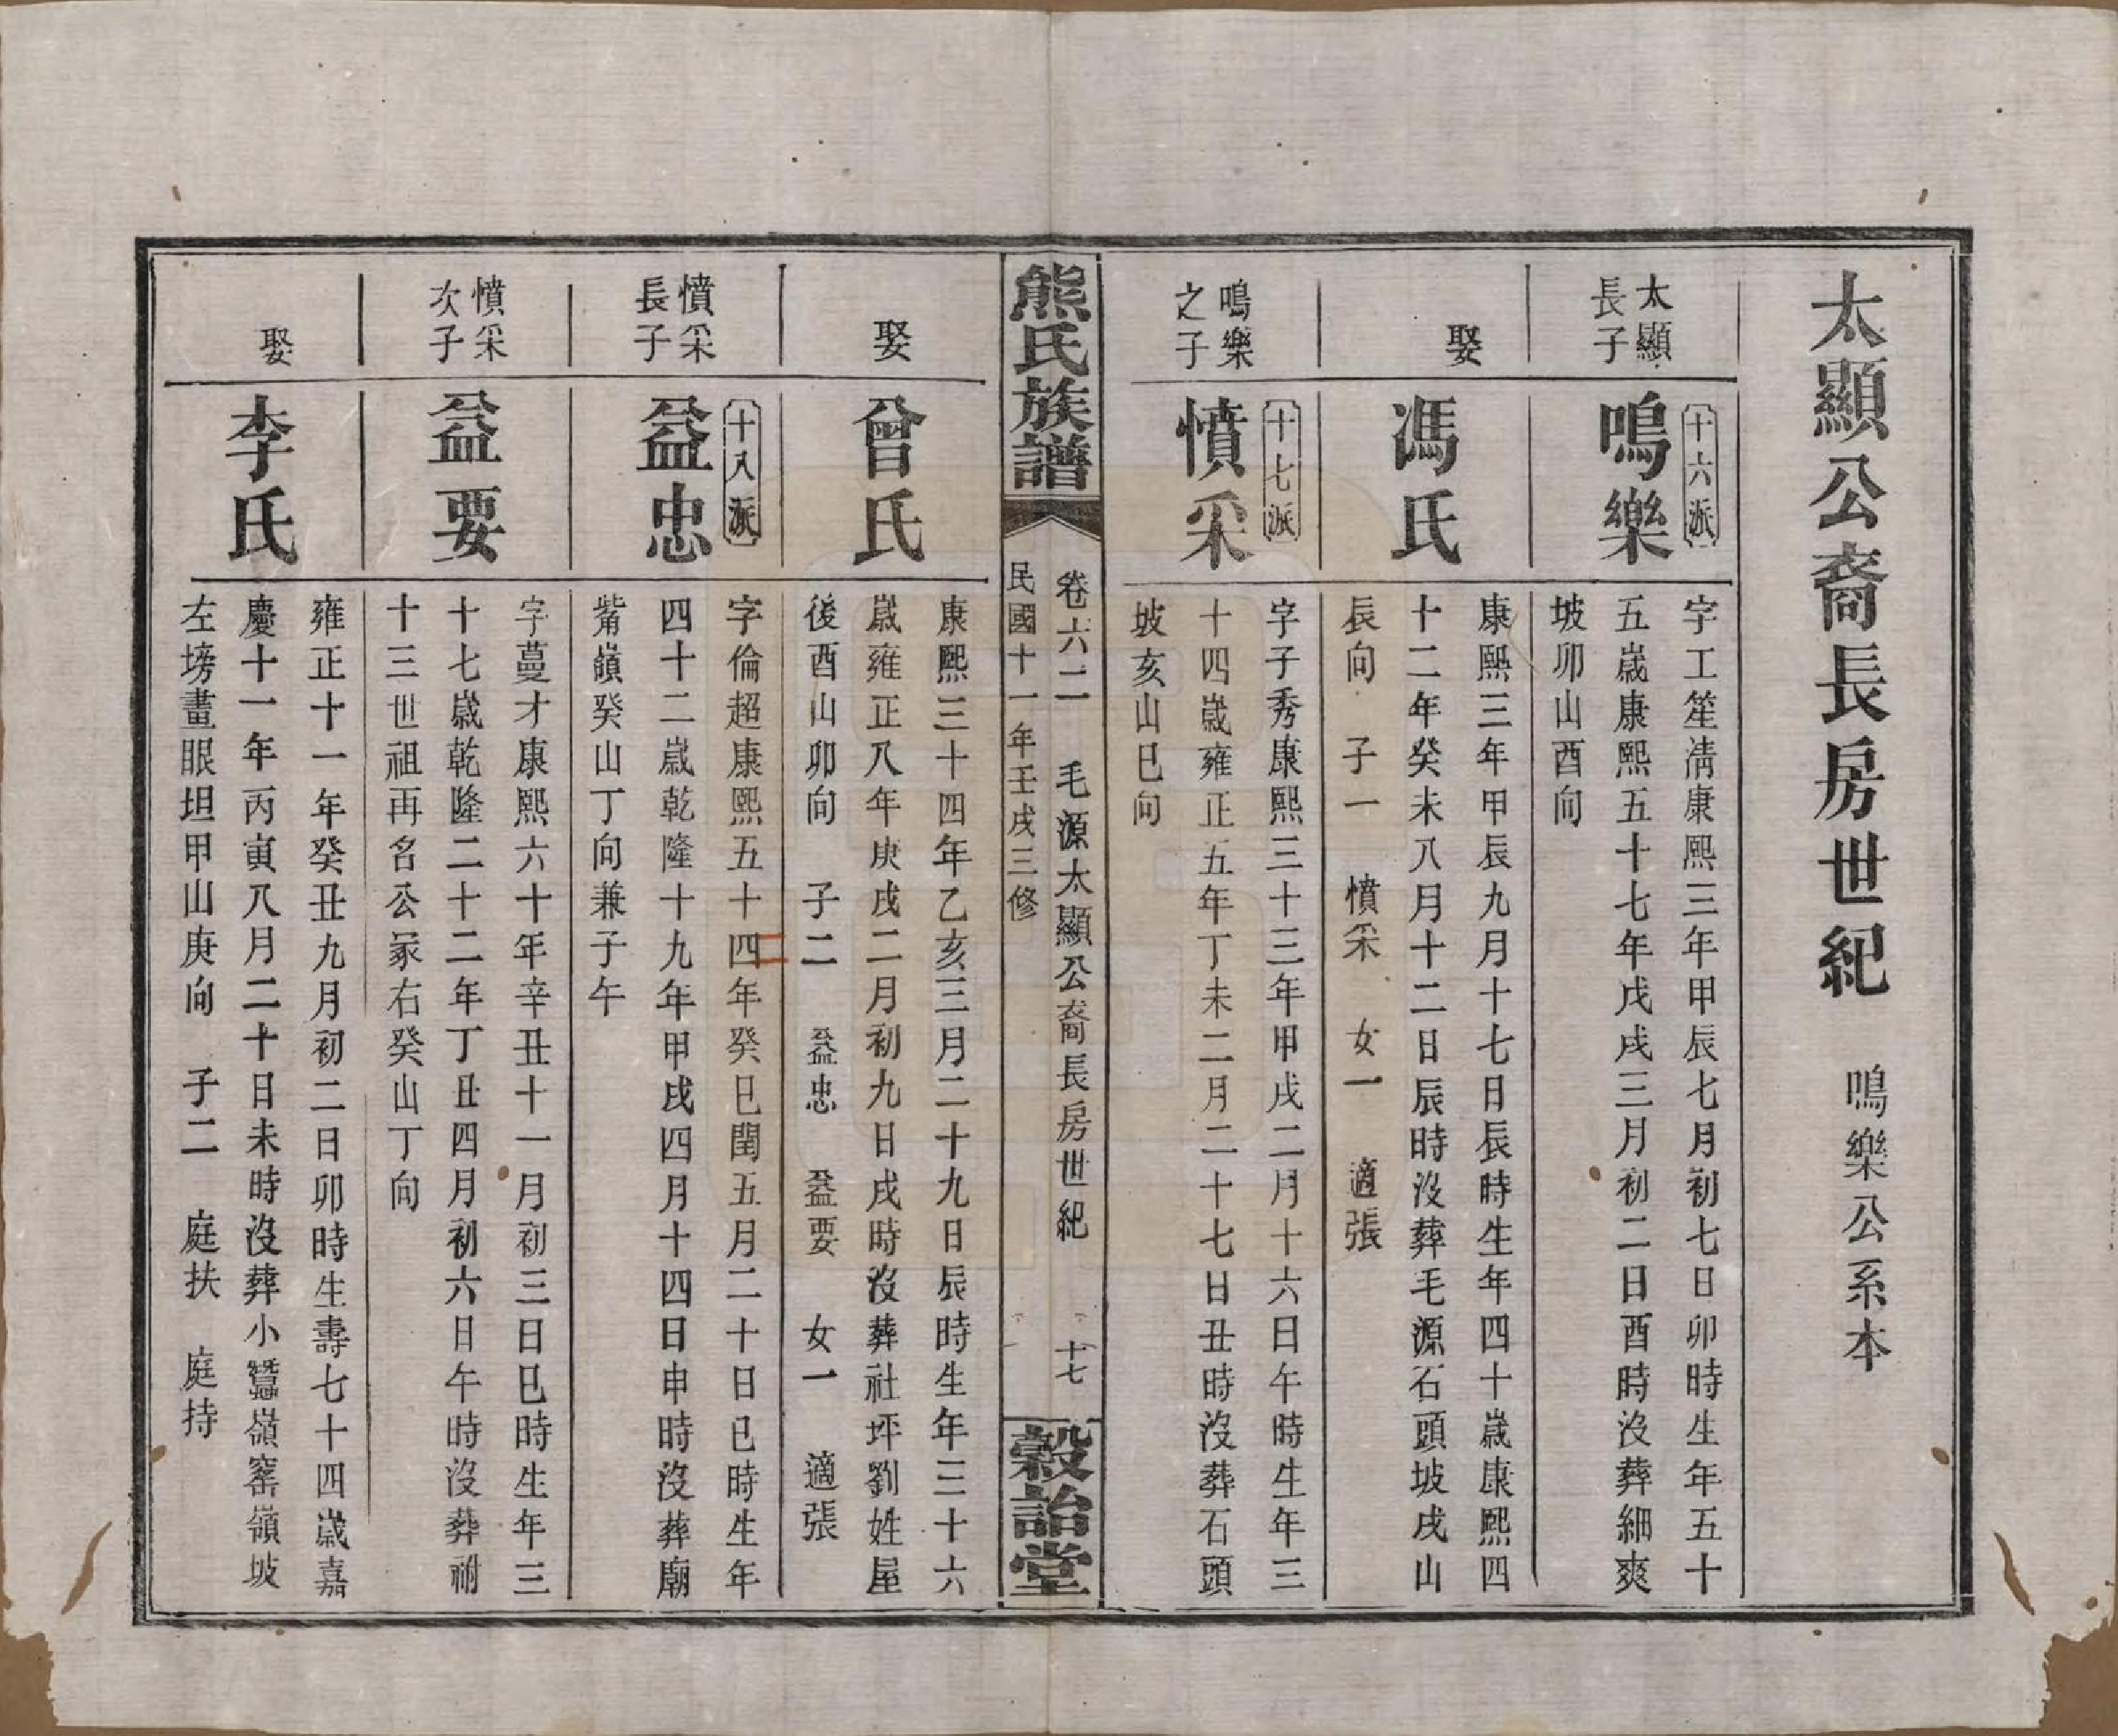 太顯公裔長房世紀　鳴樂公系本
太顯
長子
十六派
鳴樂
字工笙清康熙三年甲辰七月初七日卯時生年五十
五歲康熙五十七年戊戌三月初二日酉時沒葬細爽
坡卯山酉向
娶
馮氏
康熙三年甲辰九月十七日辰時生年四十歲康熙四
十二年癸未八月十二日辰時沒葬毛源石頭坡戌山
辰向　子一　憤采　女一　適張
鳴樂
之子
十七派
憤采
字子秀康熙三十三年甲戌二月十六日午時生年三
十四歲雍正五年丁未二月二十七日丑時沒葬石頭
坡亥山巳向
熊氏族譜
卷六二　毛源太顯公裔長房世紀　十七
民國十一年壬戌三修
穀詒堂
娶
曾氏
康熙三十四年乙亥三月二十九日辰時生年三十六
歲雍正八年庚戌二月初九日戌時沒葬社坪劉姓屋
後酉山卯向　子二　益忠　益要　女一　適張
憤采
長子
十八派
益忠
字倫超康熙五十四年癸巳閏五月二十日巳時生年
四十二歲乾隆十九年甲戌四月十四日申時沒葬廟
觜嶺癸山丁向兼子午
二
憤采
次子
益要
字蔓才康熙六十年辛丑十一月初三日巳時生年三
十七歲乾隆二十二年丁丑四月初六日午時沒葬祔
十三世祖再名公冢右癸山丁向
娶
李氏
雍正十一年癸丑九月初二日卯時生壽七十四歲嘉
慶十一年丙寅八月二十日未時沒葬小蠶嶺窰嶺坡
左塝畫眼坦甲山庚向　子二　庭扶　庭持